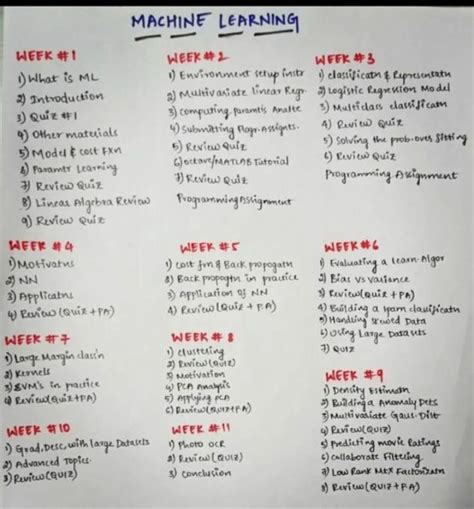 MACHINE LEARNING
WEEK #1
1) What is ML
2) Introduction
3) Quiz #1
4) Other materials
5) Model & cost Fxn
6) Paramtr Learning
7) Review Quiz
8) Linear Algebra Review
9) Review Quiz
WEEK #2
1) Environment setup instr
2) Multivariate linear Regr.
3) Computing. Paramtrs Analtc
4) Submitting Progr. Assignts.
5) Review Quiz
6) Octave/MATLAB Tutorial
7) Review Quiz
Programming Assignment
WEEK #3
1) classificatn & Representatn
2) Logistic Regression Model
3) Multiclass classificatn
4) Review Quiz
5) Solving the prob. over fitting
6) Review Quiz
Programming Assignment
WEEK #4
1) Motivatns
2) NN
3) Applicatns
4) Review (Quiz + PA)
WEEK #5
1) Cost fxn & Back propogatn
2) Back propogtn in practice
3) Application of NN
4) Review (Quiz + PA)
WEEK #6
1) Evaluating a learn-Algor
2) Bias vs variance
3) Review (Quiz + PA)
4) Building a spam classificatn
5) Handling skewed Data
6) Using Large Datasets
7) QUIZ
WEEK #7
1) Large Margin classin
2) Kernels
3) SVM's in practice
4) Review (Quiz+PA)
WEEK #8
1) clustering
2) Review (QUIZ)
3) Motivation
4) PCA Analysis
5) Applying PCA
6) Review (QUIZ+PA)
WEEK #9
1) Density Estimatn
2) Building a Anomaly Dets
3) Multivariate Gaus. Dist
4) Review (QUIZ)
5) Predicting movie Ratings
6) collaborate Filtering
7) Low Rank Mtx Factorizatn
8) Review (QUIZ + PA)
WEEK #10
1) Grad. Desc. with large Datasets
2) Advanced Topics.
3) Review (QUIZ)
WEEK #11
1) Photo OCR
2) Review (QUIZ)
3) Conclusion